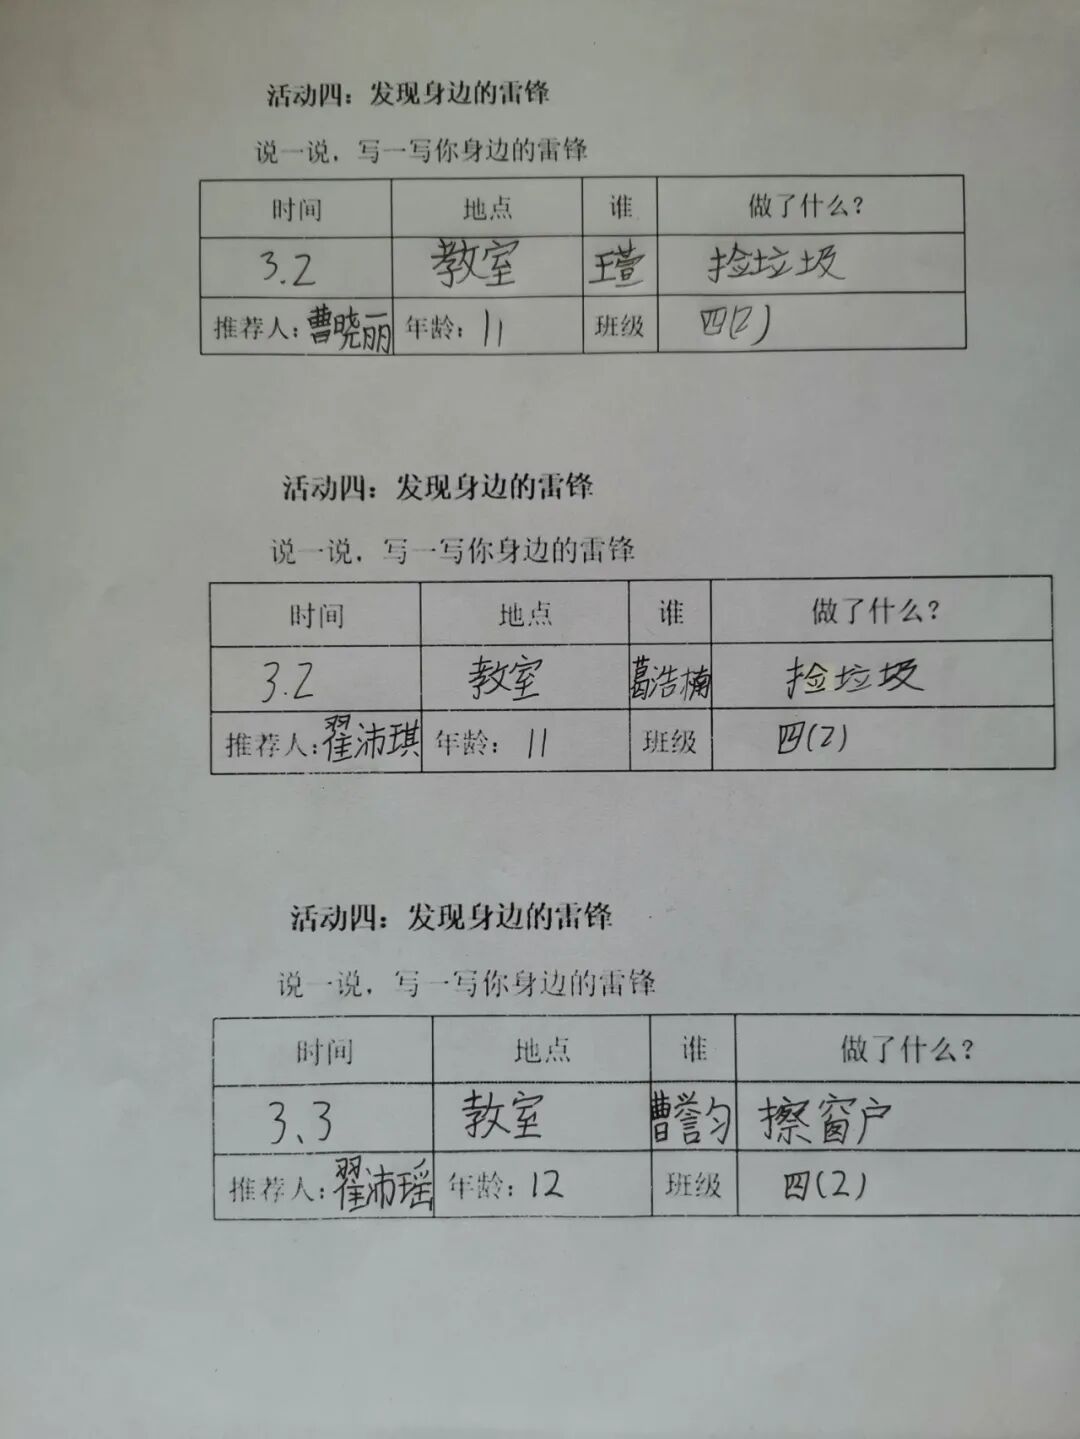 活动四：发现身边的雷锋
说一说，写一写你身边的雷锋
时间 地点 谁 做了什么？
3.2 教室 王萱 捡垃圾
推荐人：曹晓丽 年龄：11 班级 四(2)
活动四：发现身边的雷锋
说一说，写一写你身边的雷锋
时间 地点 谁 做了什么？
3.2 教室 葛浩楠 捡垃圾
推荐人：翟沛琪 年龄：11 班级 四(2)
活动四：发现身边的雷锋
说一说，写一写你身边的雷锋
时间 地点 谁 做了什么？
3、3 教室 曹誉匀 擦窗户
推荐人：翟沛瑶 年龄：12 班级 四(2)